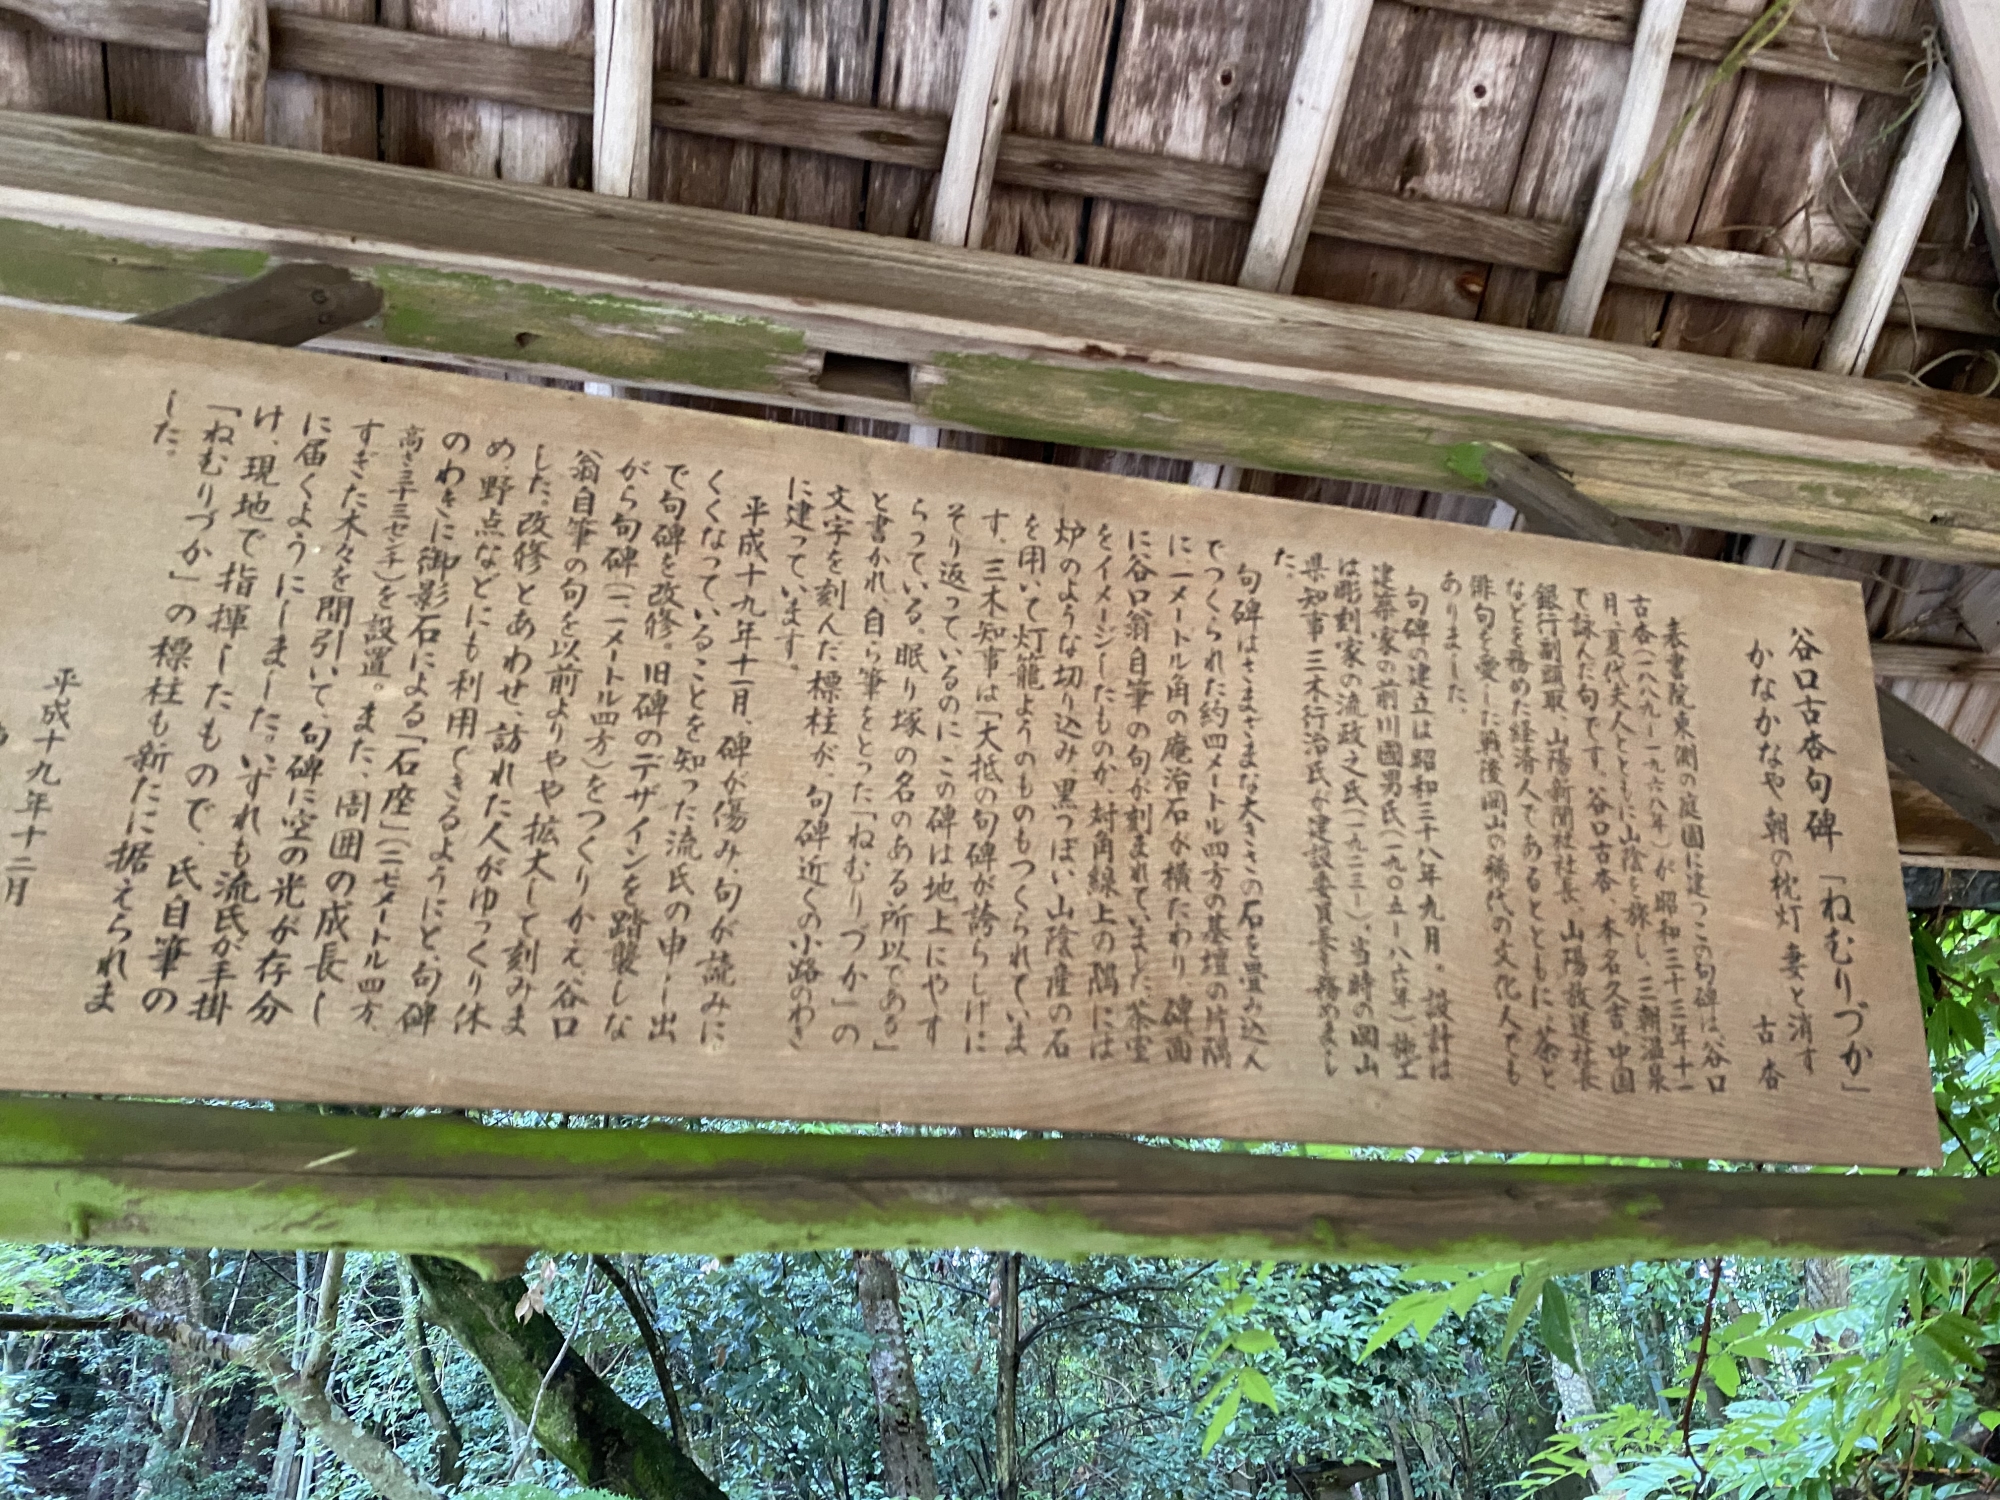 谷口古杏句碑「ねむりづか」
かなかなや朝の枕灯妻と消す
古杏
表書院東側の庭園に建つこの句碑は、谷口
古杏(一八八九ー一九六八年)が昭和三十三年十一
月、夏代夫人とともに山陰を旅し、三朝温泉
で詠んだ句です。谷口古杏、本名久吉。中国
銀行副頭取、山陽新聞社社長、山陽放送社長
などを務めた経済人であるとともに、茶と
俳句を愛した戦後岡山の稀代の文化人でも
ありました。
句碑の建立は昭和三十八年九月。設計は
建築家の前川國男氏(一九〇五ー八六年)施工
は彫刻家の流政之氏(一九二三ー)。当時の岡山
県知事三木行治氏が建設委員長を務めまし
た。
句碑はさまざまな大きさの石を畳み込ん
でつくられた約四メートル四方の基壇の片隅
に、一メートル角の庵治石が横たわり、碑面
に谷口翁自筆の句が刻まれています。茶室
をイメージしたものか、対角線上の隅には
炉のような切り込み、黒っぽい山陰産の石
を用いて灯籠ようのものもつくられていま
す。三木知事は「大抵の句碑が誇らしげに
そり返っているのに、この碑は地上にやす
らっている。眠り塚の名のある所以である」
と書かれ、自ら筆をとった「ねむりづか」の
文字を刻んだ標柱が、句碑近くの小路のわき
に建っています。
平成十九年十一月、碑が傷み、句が読みに
くくなっていることを知った流氏の申し出
で句碑を改修。旧碑のデザインを踏襲しな
がら句碑(一・一メートル四方)をつくりかえ、谷口
翁自筆の句を以前よりやや拡大して刻みま
した。改修とあわせ、訪れた人がゆっくり休
め、野点などにも利用できるようにと、句碑
のわきに御影石による「石座」(二・七メートル四方、
高さ三十三センチ)を設置。また、周囲の成長し
すぎた木々を間引いて、句碑に空の光が存分
に届くようにしました。いずれも流氏が手掛
け、現地で指揮したもので、氏自筆の
「ねむりづか」の標柱も新たに据えられま
した。
平成十九年十二月